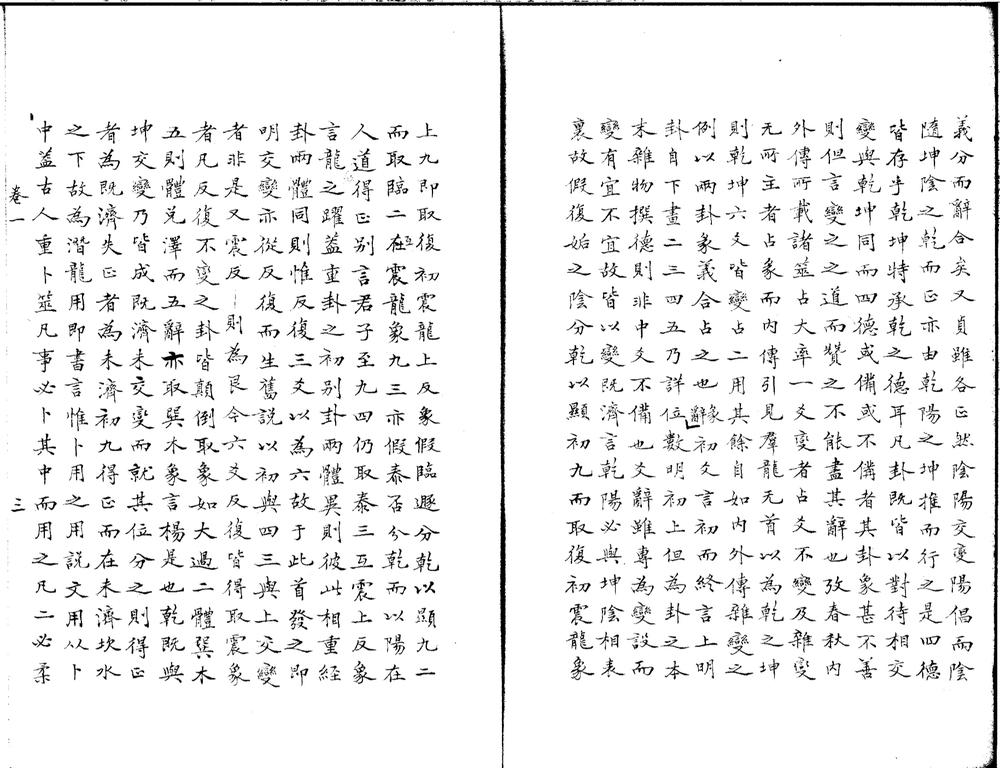 義分而辭合矣又貞雖各正然陰陽交變陽倡而陰
隨坤陰之乾而正亦由乾陽之坤推而行之是四德
皆存乎乾坤特承乾之德耳凡卦既皆以對待相交
變與乾坤同而四德或備或不備者其卦象甚不善
則但言變之之道而贊之不能盡其辭也攷春秋內
外傳所載諸筮占大率一爻變者占爻不變及雜變
无所主者占象而內傳引見羣龍无首以為乾之坤
則乾坤六爻皆變占二用其餘自如內外傳雜變之
例以兩卦象義合占之也象辭初爻言初而終言上明
卦自下畫二三四五乃詳位數明初上但為卦之本
末雜物撰德則非中爻不備也爻辭雖專為變設而
變有宜不宜故皆以變既濟言乾陽必與坤陰相表
裏故假復姤之陰分乾以顯初九而取復初震龍象
上九即取復初震龍上反象假臨遯分乾以顯九二
而取臨二在互震龍象九三亦假泰否分乾而以陽在
人道得正別言君子至九四仍取泰三互震上反象
言龍之躍蓋重卦之初別卦兩體異則彼此相重經
卦兩體同則惟反復三爻以為六故于此首發之即
明交變亦從反復而生舊說以初與四三與上交變
者非是又震反則為艮今六爻反復皆得取震象
者凡反復不變之卦皆顛倒取象如大過二體巽木
五則體兌澤而五辭亦取巽木象言楊是也乾既與
坤交變乃皆成既濟未交變而就其位分之則得正
者為既濟失正者為未濟初九得正而在未濟坎水
之下故為潛龍用即書言惟卜用之用說文用从卜
中蓋古人重卜筮凡事必卜其中而用之凡二必柔
卷一
三